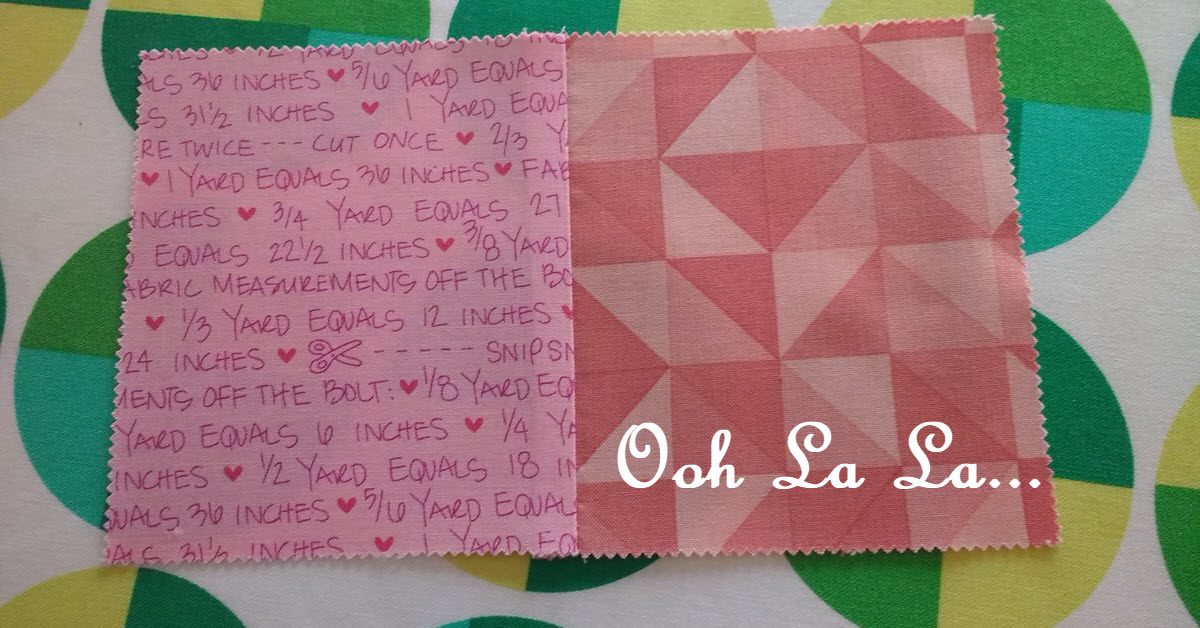 1/2 YARD EQUALS 18 INC
ALS 36 INCHES ♥ 5/6 YARD EQUALS
S 31 1/2 INCHES ♥ 1 YARD EQUA
RE TWICE --- CUT ONCE ♥ 2/3 Y
♥ 1 YARD EQUALS 36 INCHES ♥ FAB
INCHES ♥ 3/4 YARD EQUALS 27
EQUALS 22 1/2 INCHES ♥ 3/8 YARD
ABRIC MEASUREMENTS OFF THE BO
♥ 1/3 YARD EQUALS 12 INCHES ♥
24 INCHES ♥ ----- SNIP SN
MENTS OFF THE BOLT: ♥ 1/8 YARD EQ
YARD EQUALS 6 INCHES ♥ 1/4 YA
INCHES ♥ 1/2 YARD EQUALS 18 IN
UALS 36 INCHES ♥ 5/6 YARD EQUAL
ALS 31 1/2 INCHES ♥ 1 YARD EQ
Ooh La La...